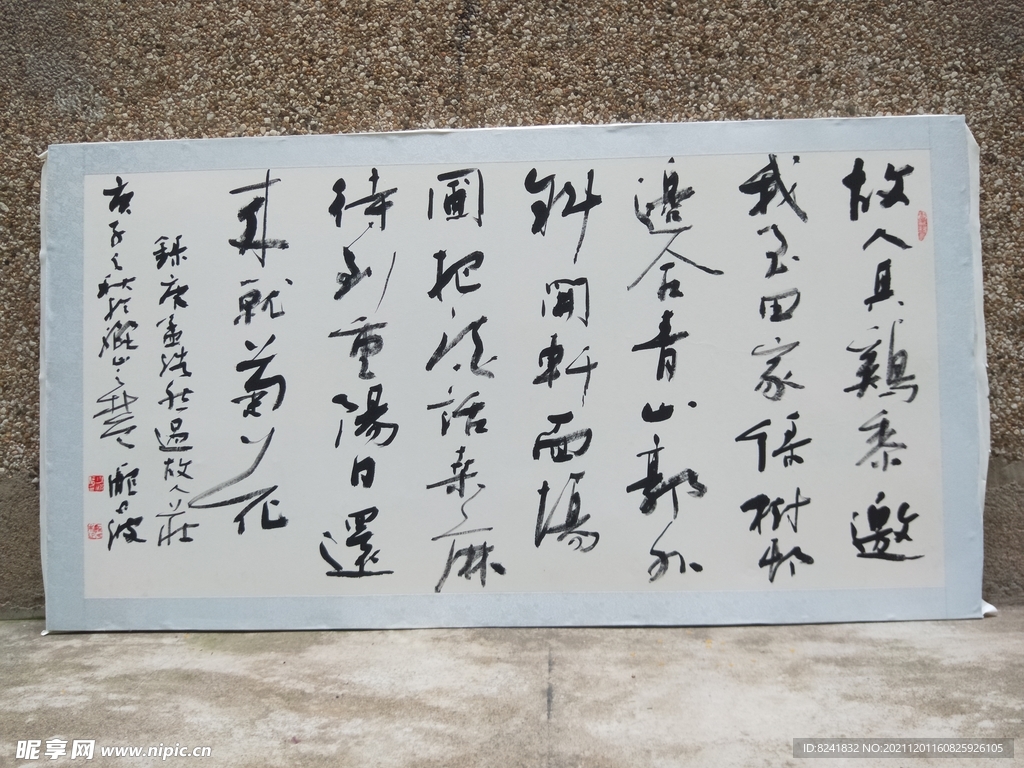 故人具鷄黍邀
我至田家綠樹邨
邊合青山郭外
斜開軒面場
圃把酒話桑麻
待到重陽日還
來就菊花
錄唐孟浩然過故人莊
庚子之秋於
昵享网 www.nipic.cn
ID:8241832 NO:20211201160825926105